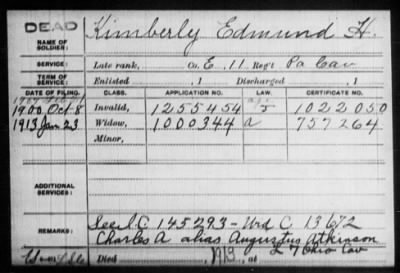 DEAD
NAME OF SOLDIER: Kimberly Edmund H.
SERVICE: Late rank, Co. E, 11 Reg't Pa Cav
TERM OF SERVICE: Enlisted , 1 Discharged , 1
DATE OF FILING. CLASS. APPLICATION NO. LAW. CERTIFICATE NO.
1900 Oct 8 Invalid, 1255454 1022050
1913 Jan 23 Widow, 1000344 a 757264
Minor,
ADDITIONAL SERVICES:
REMARKS: See I.C 145293 - Wid C 13672
Charles A alias Augustus Atkinson
L 7 Ohio Cav
Died , 191